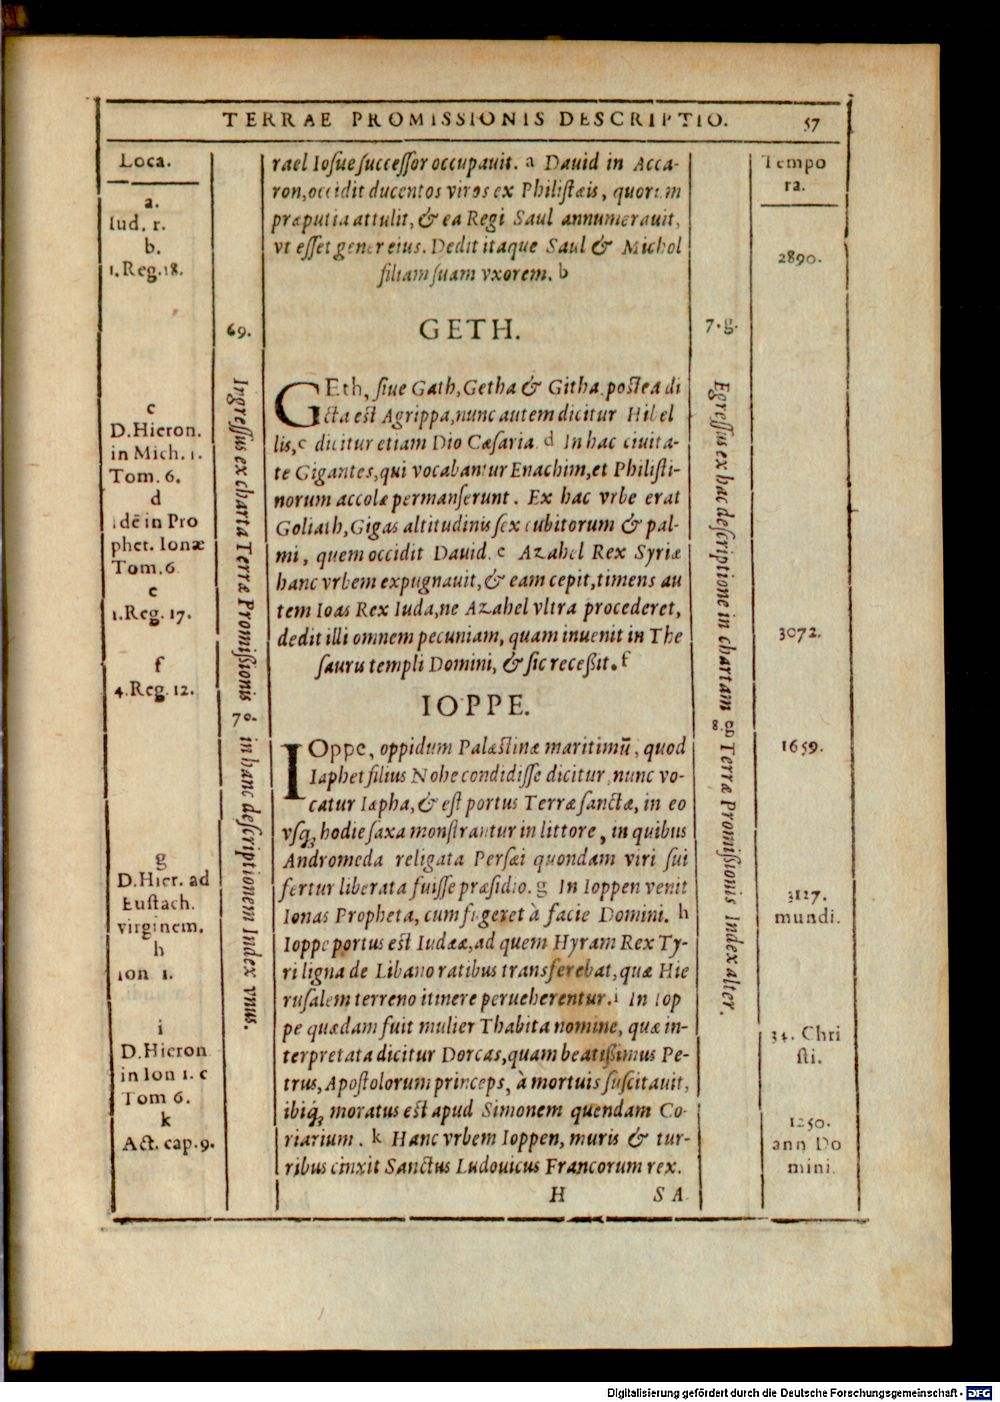 TERRAE PROMISSIONIS DESCRIPTIO. 57
Loca.
a.
Iud. 1.
b.
1.Reg.18.
c
D.Hieron.
in Mich. 1.
Tom. 6.
d
idē in Pro
phet. Ionæ
Tom.6
e
1.Reg. 17.
f
4.Reg. 12.
g
D.Hier. ad
Eustach.
virginem.
h
Ion 1.
i
D.Hieron
in Ion 1. c
Tom 6.
k
Act. cap.9.
69.
Ingressus ex charta Terræ Promissionis
70.
in hanc descriptionem Index vnus.
rael Iosue successor occupauit. a Dauid in Acca-
ron, occidit ducentos viros ex Philistæis, quorum
præputia attulit, & ea Regi Saul annumerauit,
vt esset gener eius. Dedit itaque Saul & Michol
filiam suam vxorem. b
GETH.
GEth, siue Gath, Getha & Githa, postea di
cta est Agrippa, nunc autem dicitur Hibel
lis, c dicitur etiam Dio Cæsaria. d In hac ciuita-
te Gigantes, qui vocabantur Enachim, et Philisti-
norum accolæ permanserunt. Ex hac vrbe erat
Goliath, Gigas altitudinis sex cubitorum & pal-
mi, quem occidit Dauid. e Azahel Rex Syriæ
hanc vrbem expugnauit, & eam cepit, timens au
tem Ioas Rex Iuda, ne Azahel vltra procederet,
dedit illi omnem pecuniam, quam inuenit in The
sauru templi Domini, & sic recessit. f
IOPPE.
IOppe, oppidum Palæstinæ maritimū, quod
Iaphet filius Nohe condidisse dicitur, nunc vo-
catur Iapha, & est portus Terræ sanctæ, in eo
vsq; hodie saxa monstrantur in littore, in quibus
Andromeda religata Persæi quondam viri sui
fertur liberata fuisse præsidio. g In Ioppen venit
Ionas Propheta, cum fugeret à facie Domini. h
Ioppe portus est Iudææ, ad quem Hyram Rex Ty-
ri ligna de Libano ratibus transferebat, quæ Hie
rusalem terreno itinere perueherentur. i In Iop
pe quædam fuit mulier Thabita nomine, quæ in-
terpretata dicitur Dorcas, quam beatissimus Pe-
trus, Apostolorum princeps, à mortuis suscitauit,
ibiq; moratus est apud Simonem quendam Co-
riarium. k Hanc vrbem Ioppen, muris & tur-
ribus cinxit Sanctus Ludouicus Francorum rex.
H SA
7.g.
Egressus ex hac descriptione in chartam
8.
Terræ Promissionis Index alter.
Tempo
ra.
2890.
3072.
1659.
3127.
mundi.
34. Chri
sti.
1250.
ann Do
mini.
Digitalisierung gefördert durch die Deutsche Forschungsgemeinschaft - DFG